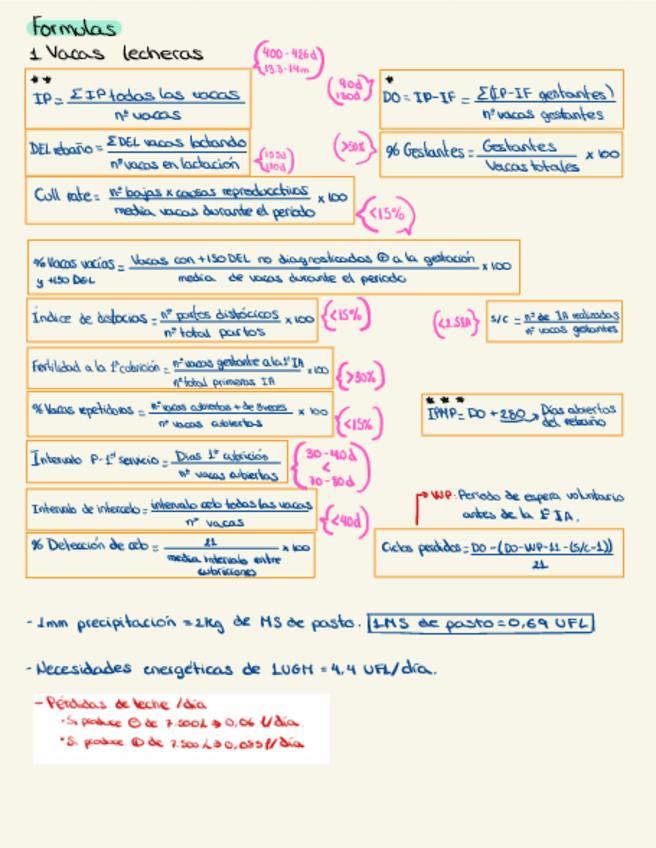 Formulas
1 Vacas lecheras
400-426d
13.3-14m
**
IP = Σ IP todas las vacas
nº vacas
90d
130d
*
DO = IP-IF = Σ(IP-IF gestantes)
nº vacas gestantes
DEL rebaño = Σ DEL vacas lactando
nº vacas en lactación
>50%
% Gestantes = Gestantes x 100
Vacas totales
Cull rate = nº bajas x causas reproductivas x 100
media vacas durante el periodo
<15%
% Vacas vacías = Vacas con +150 DEL no diagnosticadas ⊕ a la gestación x 100
y +150 DEL
media de vacas durante el periodo
Índice de distocias = nº partos distócicos x 100
nº total partos
<15%
S/C = nº de IA realizadas
nº vacas gestantes
Fertilidad a la 1ª cubrición = nº vacas gestante a la 1ª IA x 100
nº total primeras IA
>30%
% Vacas repetidoras = nº vacas cubiertas + de 3 veces x 100
nº vacas cubiertas
<15%
***
IPMP = DO + 280 → Días abiertos
del rebaño
Intervalo P-1º servicio = Dias 1ª cubrición
nº vacas cubiertas
30-40d
<
70-80d
Intervalo de intercelo = intervalo celo todas las vacas
nº vacas
<40d
WP: Periodo de espera voluntario
antes de la 1ª IA.
% Detección de celo = 21 x 100
media intervalo entre
cubriciones
Ciclos perdidos = DO - (DO-WP-11-(S/C-1))
21
- 1mm precipitación = 2Kg de MS de pasto. 1MS de pasto = 0,69 UFL
- Necesidades energéticas de 1UGM = 4,4 UFL/día.
- Pérdidas de leche /día
• Si produce ⊖ de 7.500L → 0,06 l/día
• Si produce ⊕ de 7.500L → l/día